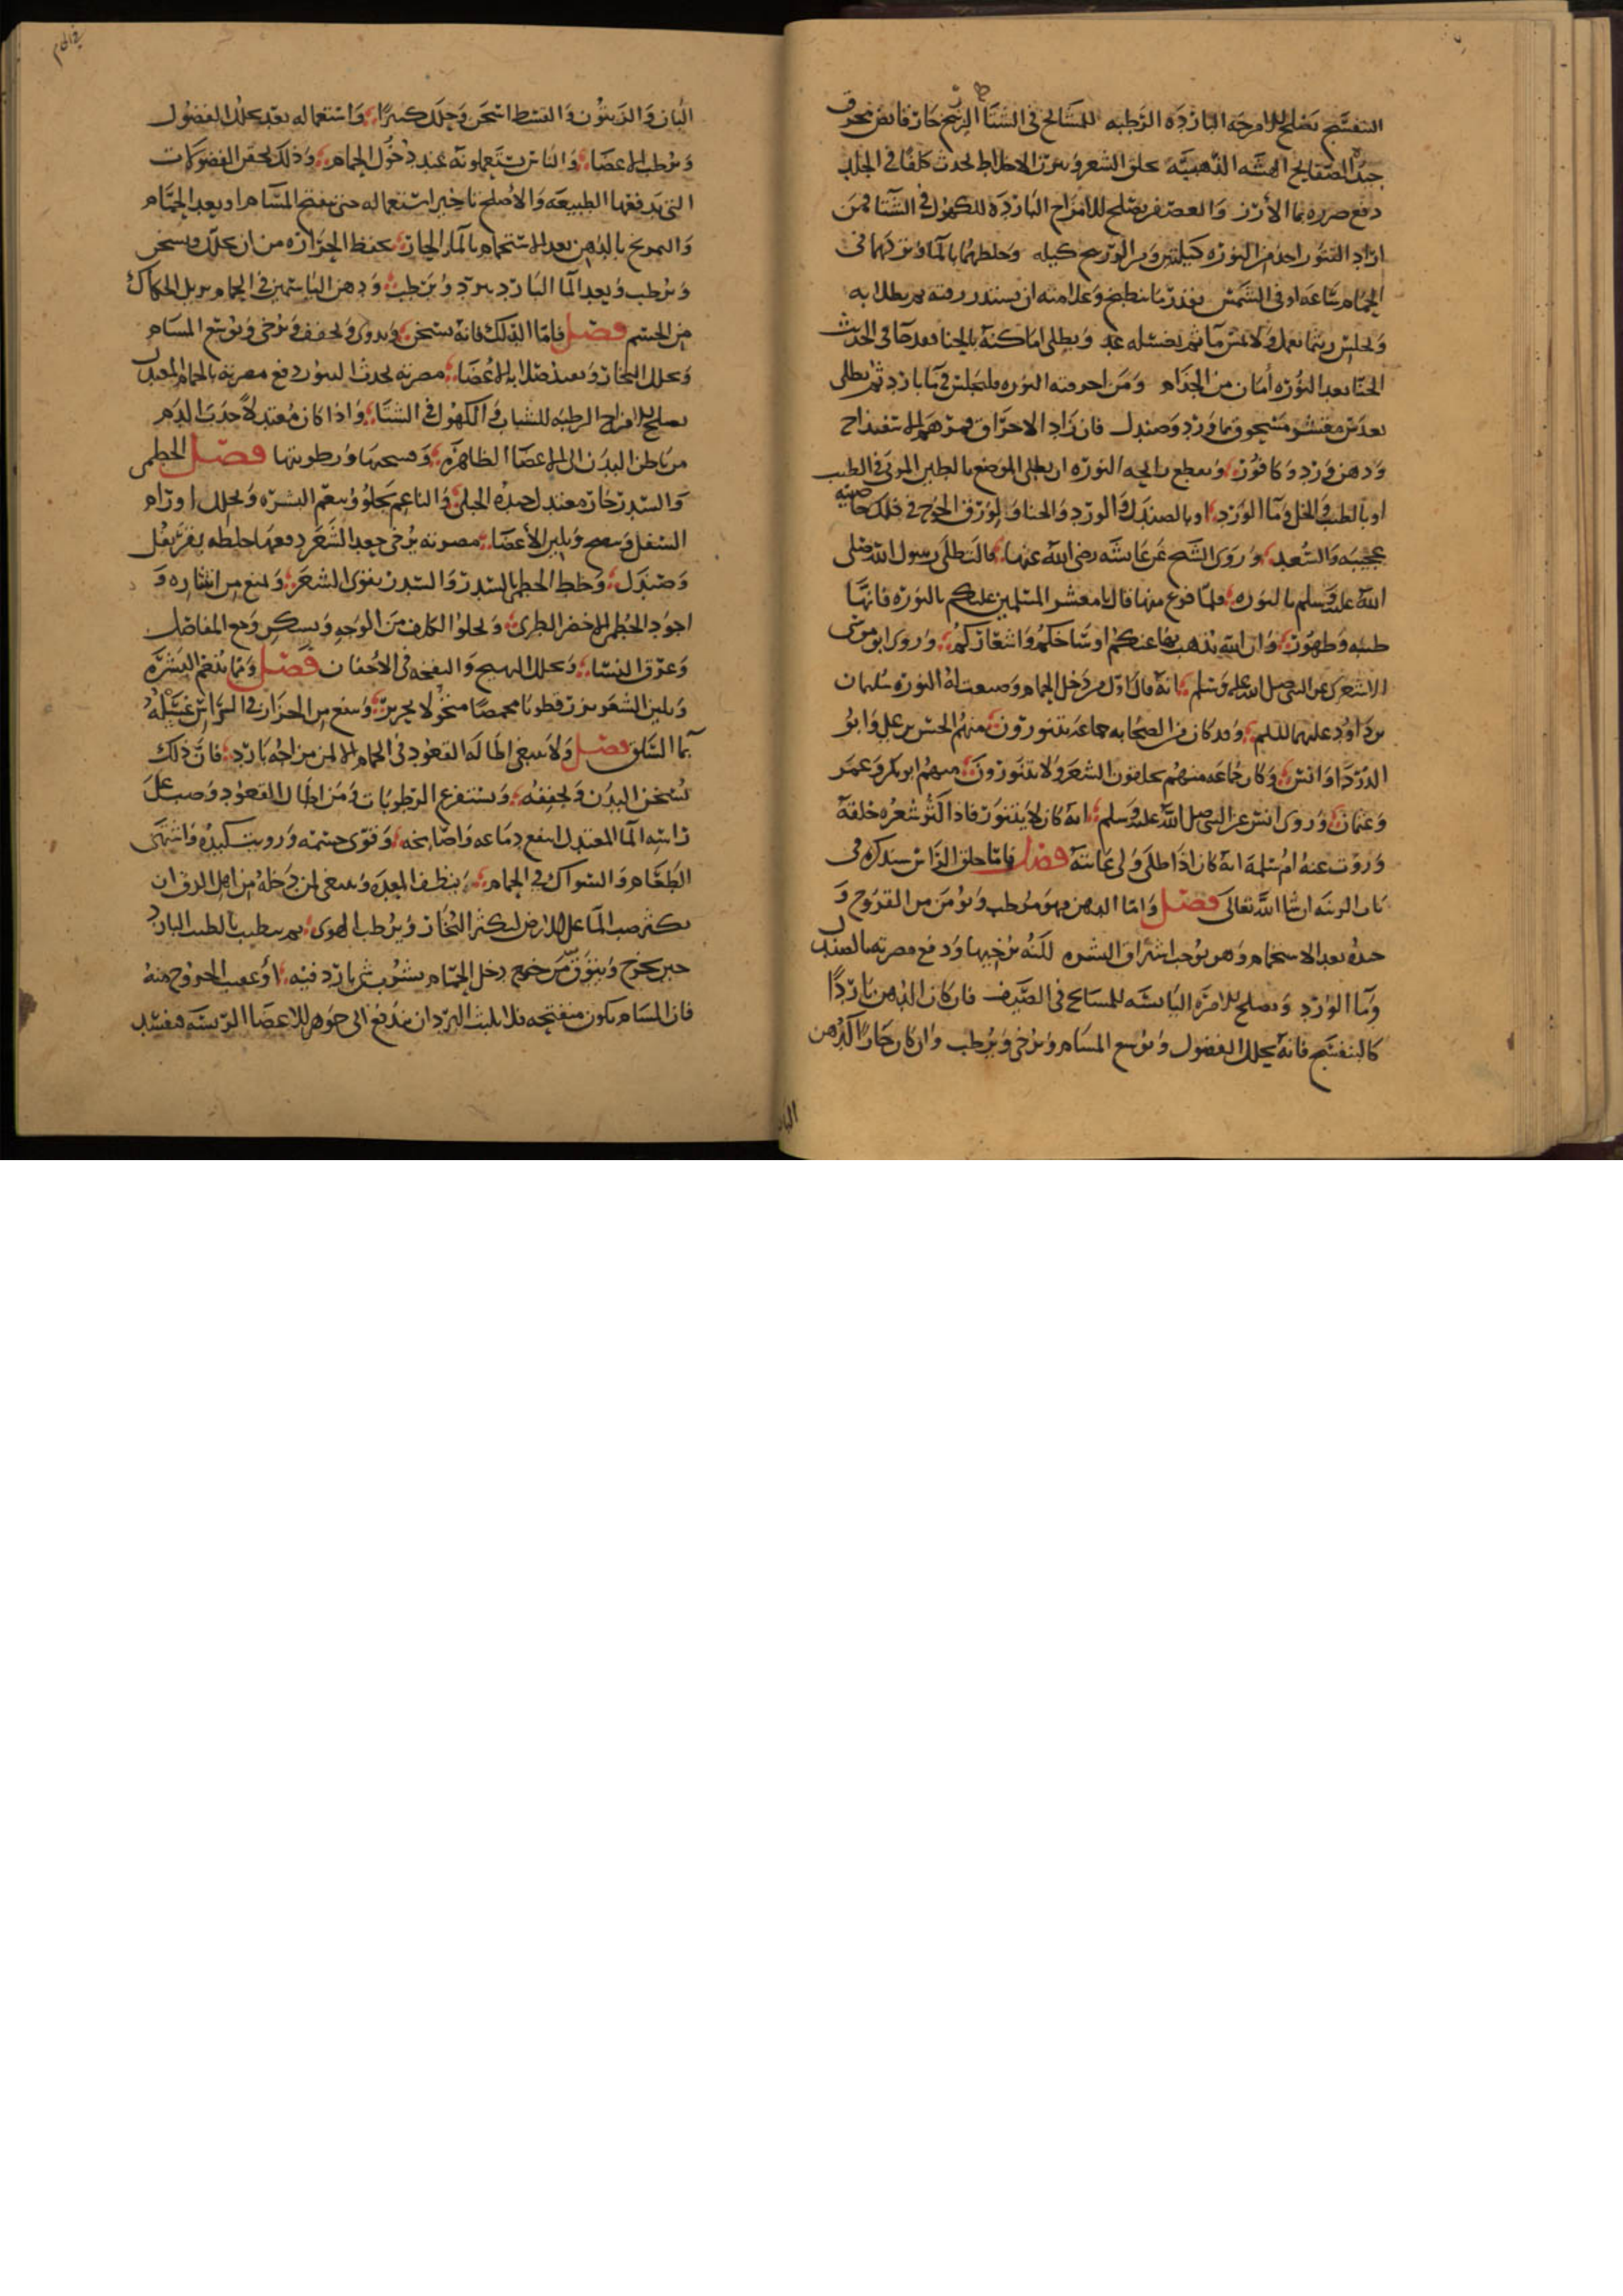 البنفسج يصلح للامزجه البارده الرطبه للمشايخ في الشتا الزرنيخ حار قابض محرق
جيده الصفايح الهشه الذهبيه يحلق الشعر الاخلاط يحدث كلفا في الجلد
دفع ضرره بما الأرز والعصفر يصلح للامزاج البارده للكهول في الشتا فمن
اراد التنور اخذ من النوره كيلتين ومن الزرنيخ كيله وخلطهما بالماء وتركهما في
الحمام ساعه او في الشمس بقدر ما ينطبخ وعلامته ان يستدير زرقته ثم يطلا به
ويجلس ريثما يعمل ولا يمس ما ثم يغسله ويطلى اماكنه بالحنا فقد جا في الحديث
الحنا بعد النوره أمان من الجذام ومن احرقته النوره فليجلس في ما بارد ثم يطلى
بعدس مقشر مسحوق بما ورد وصندل فان زاد الاحراق فمرهم الاسفيداج
ودهن ورد وكافور ويقطع رايحه النوره ان يطلى الموضع بالطين المربى في الطيب
او بالطيب في الخل وما الورد او بالصندل والورد والحنا وورق الخوخ في ذلك خاصيه
عجيبه والسعد وروى الشيخ عن عايشه رضي الله عنها قالت طلى رسول الله صلى
الله عليه وسلم بالنوره فلما فرغ منها قال يا معشر المسلمين عليكم بالنوره فانها
طيبه وطهور وان الله يذهب بها عنكم اوساخكم واشعاركم وروى ابو موسى
الاشعري عن النبي صلى الله عليه وسلم انه قال اول من دخل الحمام وصنعت له النوره سليمان
بن داود عليهما السلم وقد كان من الصحابه جماعه يتنورون منهم الحسن بن علي وابو
الدردا وانس وكان جماعه منهم يحلقون الشعر ولا يتنورون منهم ابو بكر وعمر
وعثمان وروى انس عن النبي صلى الله عليه وسلم انه كان لا يتنور فاذا اكثر شعره حلقه
وروت عنه ام سلمه انه كان اذا اطلى ولى عانته فصل فاما حلق الراس سنذكره في
باب الزينه ان شا الله تعالى فصل واما الدهن فهو مرطب ويؤمن من القروح و
حده بعد الاستحمام وهو يوجب اشراق البشره لكنه يرخيها ودفع مضرته بالصندل
وما الورد ويصلح للامزه اليابسه للمشايخ في الصيف فان كان الدهن باردا
كالبنفسج فانه يحلل الفضول ويوسع المسام ويرخي ويرطب وان كان حارا كدهن
البان
البان والزيتون والقسط اسخن وحلل كثيرا واستعماله بعد تحلل الفضول
ويرطب الاعضا والناس يستعملونه عند دخول الحمام وذلك يحقن الفضولات
التي تدفعها الطبيعه والاصلح تاخير استعماله حتى تنفتح المسام او بعد الحمام
والتمريخ بالدهن بعد الاستحمام بالماء الحار يحفظ الحراره من ان تحلل ويسخن
ويرطب وبعد الما البارد يبرد ويرطب ودهن الياسمين في الحمام يزيل الحكاك
من الجسم فصل فاما الدلك فانه يسخن ويجفف ويرخي ويوسع المسام
ويحلل البخار الاعضا مضرته يحدث دفع مضرته بالحمام المعتدل
يصلح للامزاج الرطبه للشباب والكهول في الشتا واذا كان معتدلا جذب الدم
من باطن البدن الى الاعضا الظاهره ورطوبتها فصل الخطمي
والسدر حار معتدل الجبلى والناعم يجلو وينعم البشره ويحلل اورام
السفل ويلين الأعضا مضرته يرخي جعد الشعر دفعها خلطه بقرنفل
وصندل وخلط الخطمي بالسدر والسدر يقوى الشعر ويمنع من انتثاره و
اجود الخطمى الاخضر الطرى ويجلوا الكلف من الوجه ويسكن وجع المفاصل
وعرق النسا ويحلل التهيج والنفخه في الاجفان فصل ومما ينعم البشره
ويلين الشعر بزر قطونا محمصا ويمنع من الحزاز في الراس غسله
بما السلق فصل ولا ينبغي اطالة القعود في الحمام الا لمن مزاجه بارد فان ذلك
يسخن البدن ويجففه ويستفرغ الرطوبات ومن اطال القعود وصب على
راسه الما المعتدل انتفع دماغه وقوى جسمه ورويت كبده واشتهى
الطعام والسواك في الحمام ينظف المعده وينبغي لمن دخله من اهل الدق ان
يكثر صب الما على الارض ليكثر البخار ويرطب الهوى ثم يتطيب بالطيب البارد
حين يخرج ويتوق من خرج دخل الحمام بشرب شي بارد فيه او عقيب الخروج منه
فان المسام تكون منفتحه فلا يلبث البرد ان يندفع الى جوهر الاعضا الرييسه فيفسد